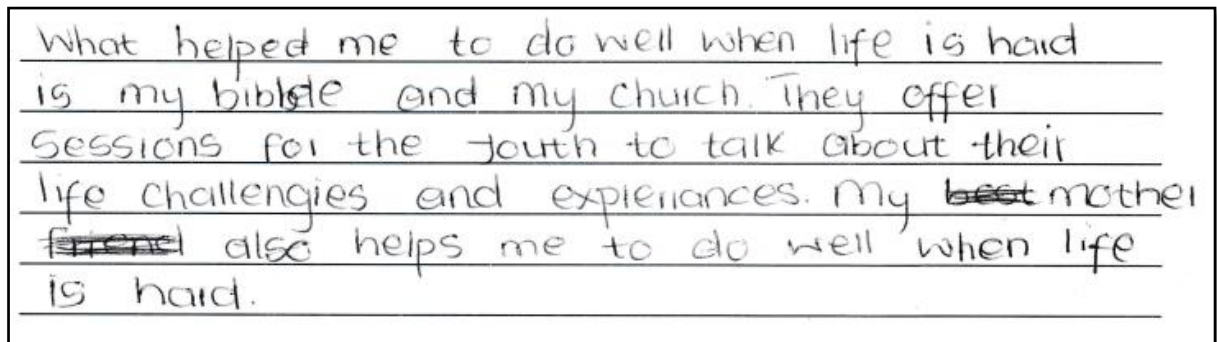 What helped me to do well when life is hard
is my bible and my church. They offer
sessions for the youth to talk about their
life challengies and expieriances. My best mother
friend also helps me to do well when life
is hard.